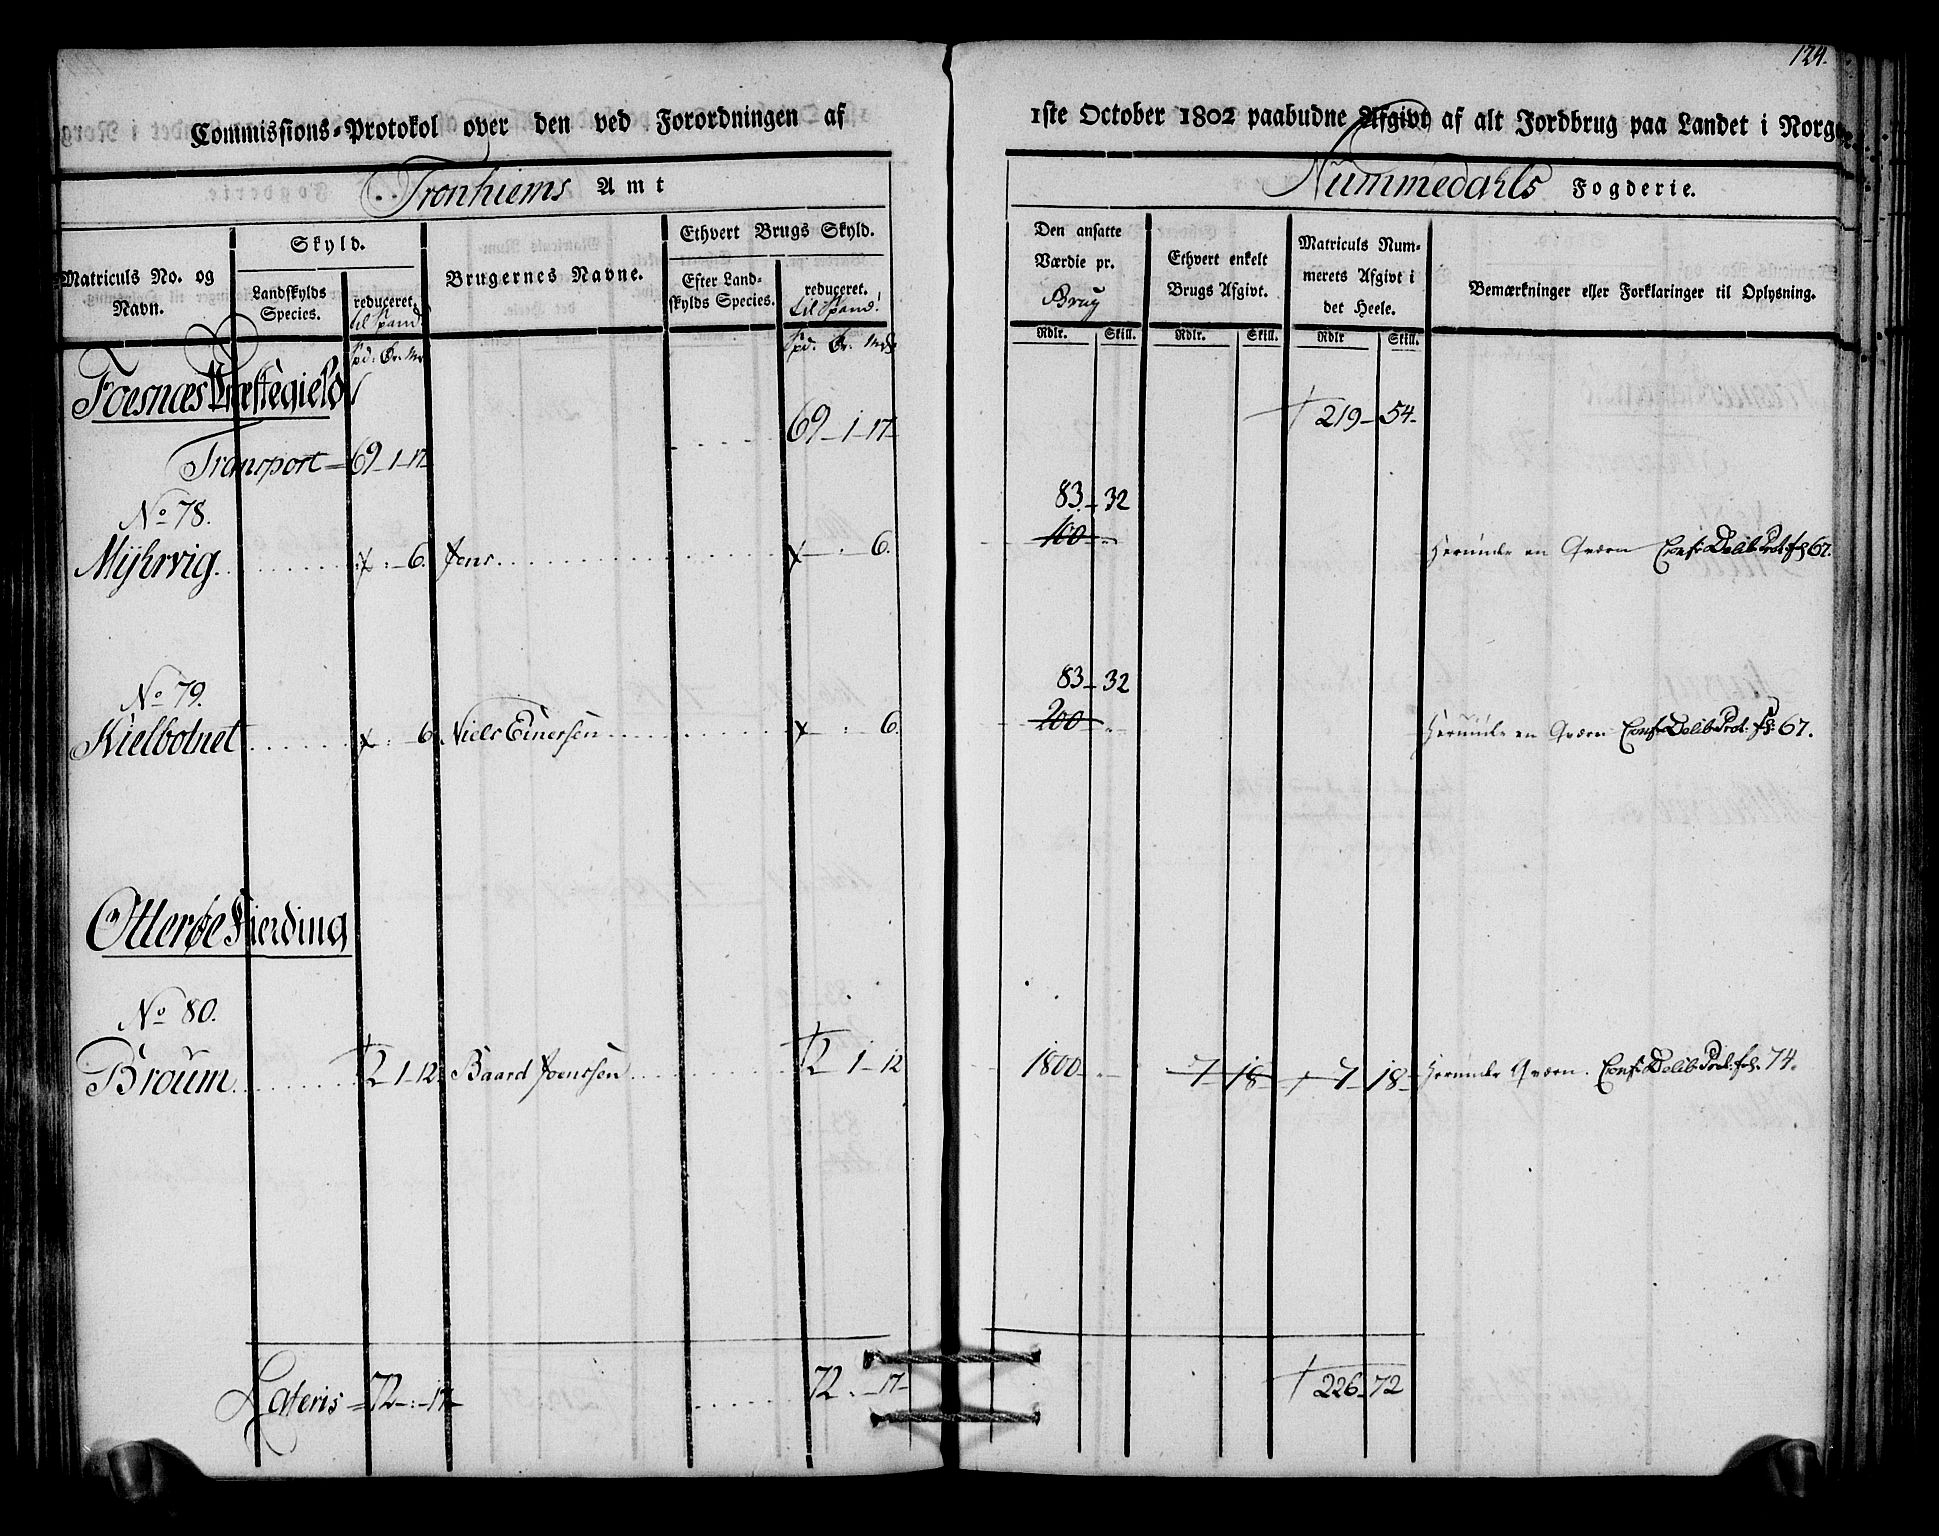 124.
Commissions-Protokol over den ved Forordningen af 1ste October 1802 paabudne Afgivt af alt Jordbrug paa Landet i Norge.
Tronhiems Amt
Nummedahls Fogderie.
Matriculs No. og Navn.
Skyld.
Landskylds Species.
reduceret til Spand!
Brugernes Navne.
Ethvert Brugs Skyld.
Efter Landskylds Species.
reduceret til Spand!
Den ansatte Værdie pr. Brug
Ethvert enkelt Brugs Afgivt.
Matriculs Nummerets Afgivt i det Heele.
Bemærkninger eller Forklaringer til Oplysning.
Spd: Ör. Mr
Spd: Ör. Mr
Rdlr. Skill. Rdlr. Skill. Rdlr Skill.
Foesnæs Præstegield
Transport = 69 - 1 - 17 69 - 1 - 17 219 - 54 -
No 78.
83 - 32
Myhrvig 6. Jons 6. 100 Herunder en Qværn Conf: Delib: Prot: fs 67.
No 79.
83 - 32
Kielbotnet 6 Niels Einersen 6. 200 Herunder en Qværn Conf: Delib: Prot: fs: 67.
Otterøe Fierding
No 80.
Broum 2 1 12 Baard Joensen 2 1 - 12 1800 7 - 18 7 - 18 Herunder Qværn. Conf: Delib: Prot: fs. 74.
Lateris = 72 - : - 17 72 . - 17 - 226 - 72